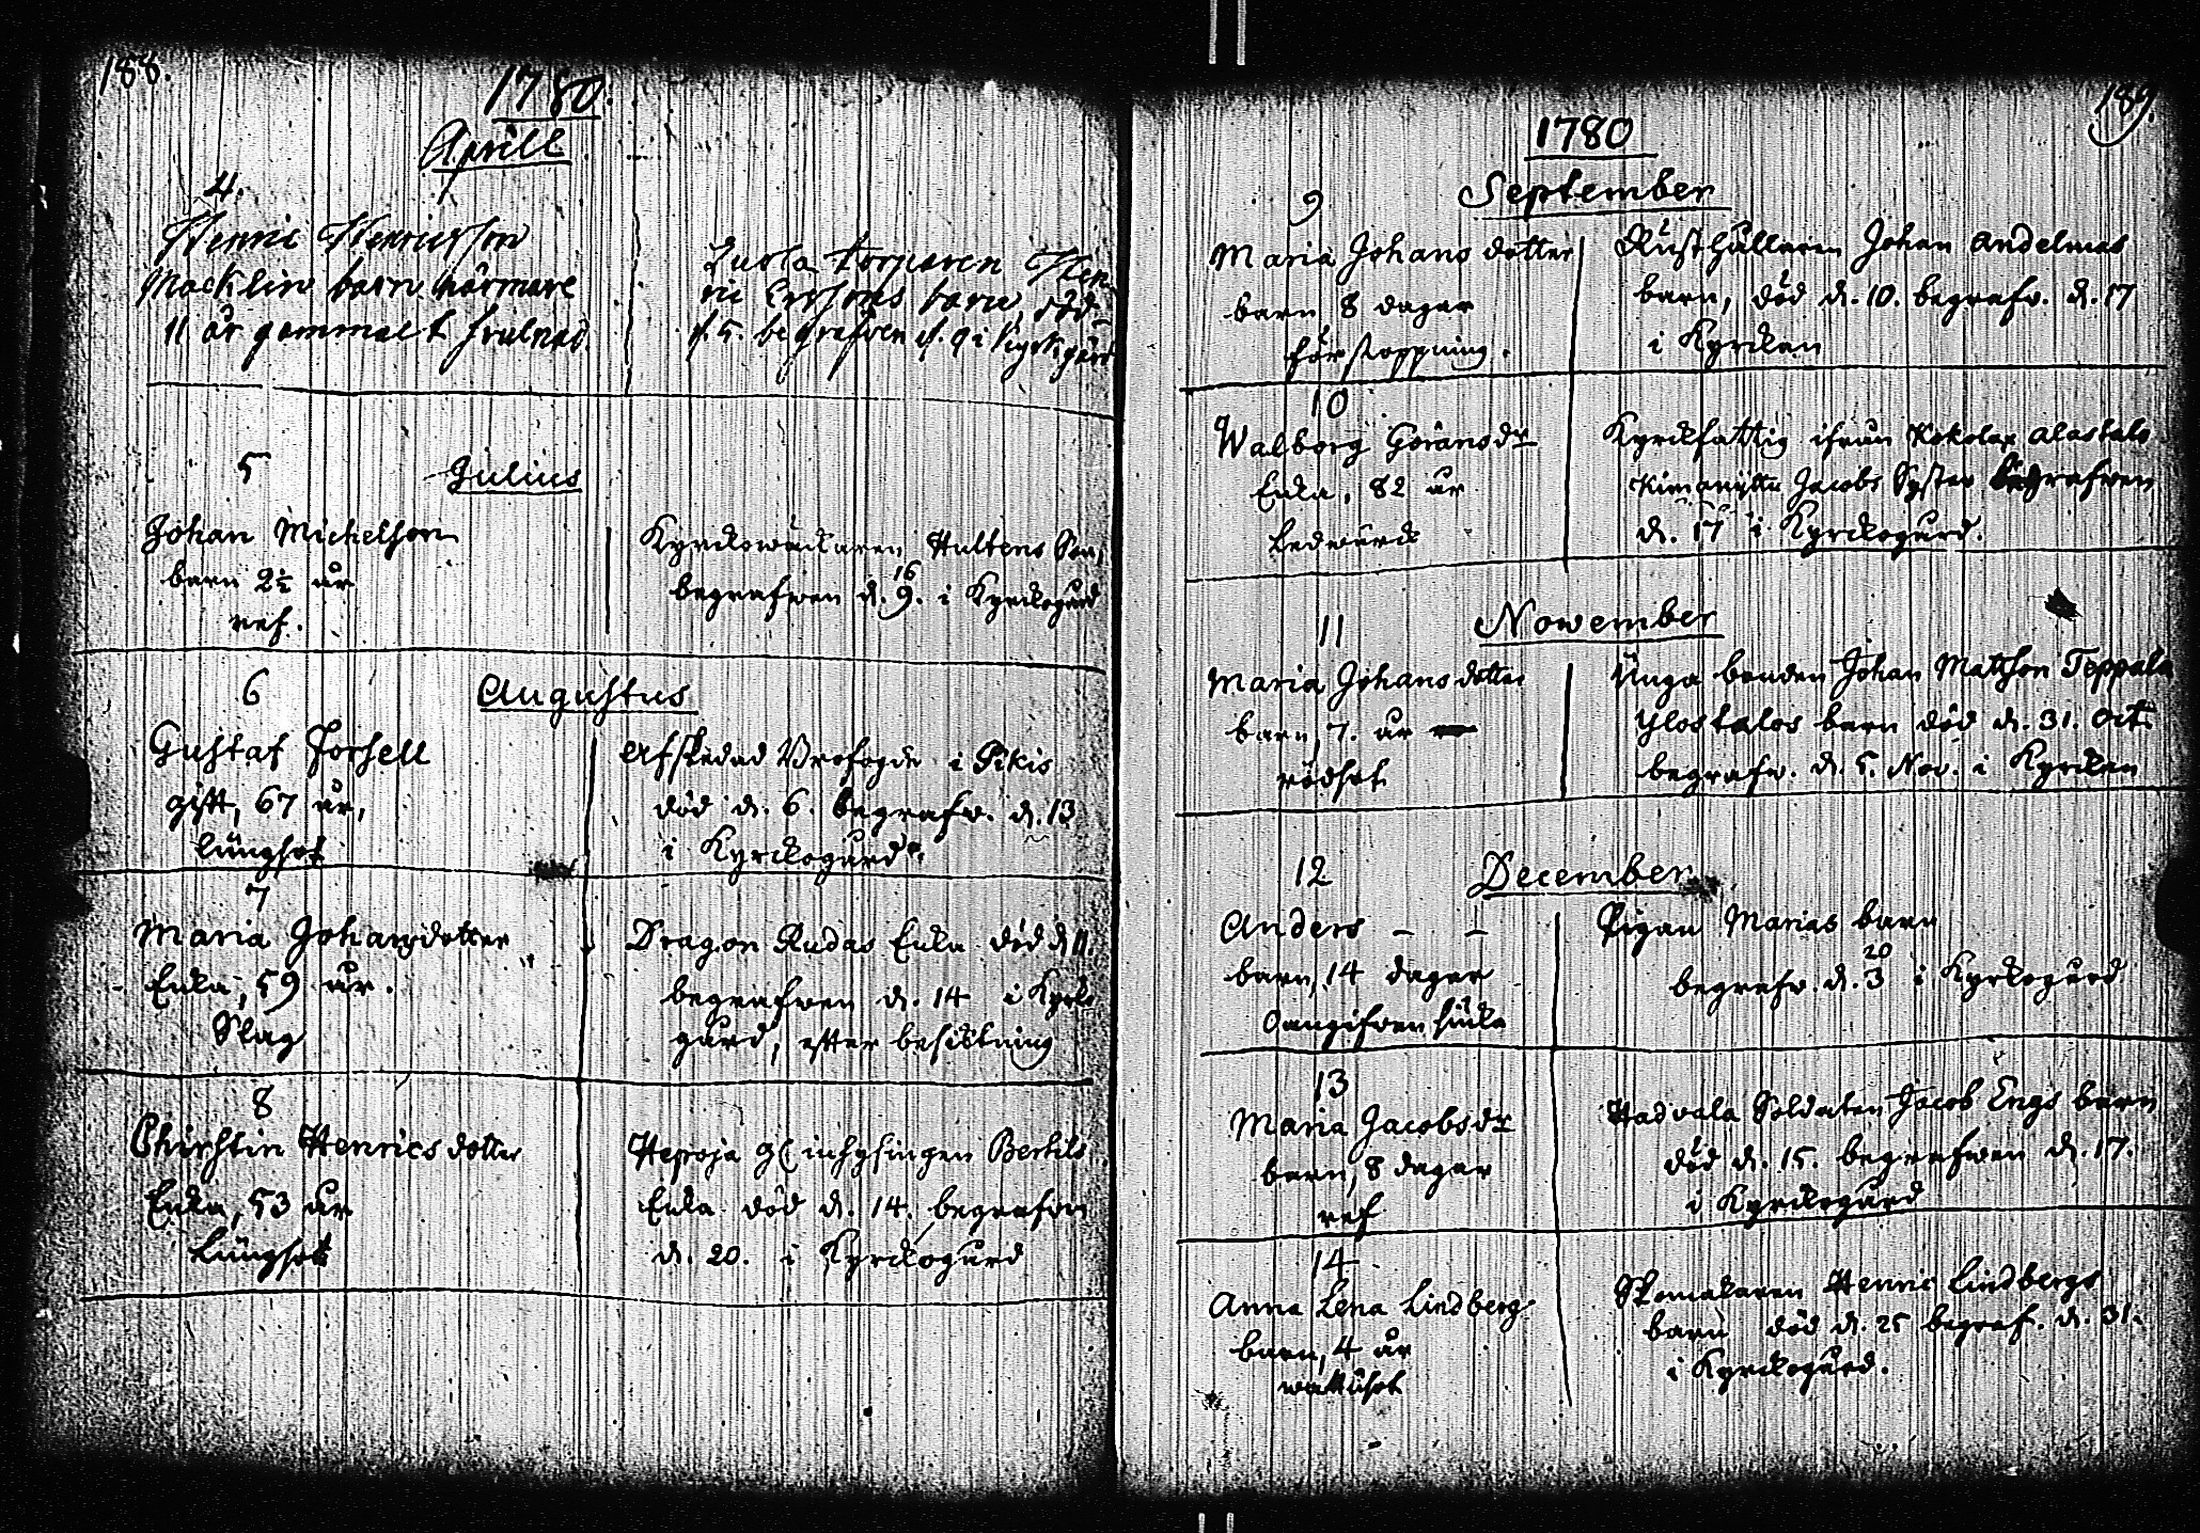 188.
1780.
Aprill
4.
Henric Henricsson
Macklin barn närmare
11 år gammalt
torparen Hen-
ric Erssons barn, död
d. 5. begrafven d. 9 i Kyrkogård
5
Julius
Johan Michelsson
barn 2½ år
ref.
Kyrckowäcktaren Hultens Son,
begrafwen d. 9. 16 i Kyrckogård
6
Augustus
Gustaf Forsell
gift, 67 år,
lungsot
Afskedad Brofogde i Pikis
död d. 6. begrafw. d. 13
i Kyrckogård.
7
Maria Johansdotter
Enka, 59 år.
Slag
Dragon Rudas Enka död d. 11.
begrafwen d. 14 i Kyrko
gård, efter besicktning
8
Christin Henrics dotter
Enka, 53 år
Lungsot
Heproja gl inhysingen Bertils
Enka död d. 14. begrafwen
d. 20. i Kyrckogård
189.
1780
September
9
Maria Johans dotter
barn 8 dagar
förstoppning.
Rusthållaren Johan Andelmas
barn, död d. 10. begrafw. d. 17
i Kyrckan
10
Walborg Göransdr
Enka, 82 år
Ledwärck
Kyrckfattig ifrån Kokolax Alastalo
Jacobs Syster begrafwen
d. 17 i Kyrckogård.
11
November
Maria Johans dotter
barn, 7. år
rödsot
Unga bonden Johan Matsson Teppala
Ylostalos barn död d. 31. Oct.
begrafw. d. 5. Nov. i Kyrckan
12
December
Anders - -
barn, 14 dagar
Oangifwen siuka
Pigan Marias barn
begrafw. d. 3 20 i Kyrkogård
13
Maria Jacobsdr
barn, 8 dagar
ref
Hadvala Soldaten Jacob Engs barn
död d. 15. begrafwen d. 17.
i Kyrckogård
14
Anna Lena Lindberg
barn, 4 år
wattusot
Skomakaren Henric Lindbergs
barn död d. 25 begraf. d. 31.
i Kyrckogård.